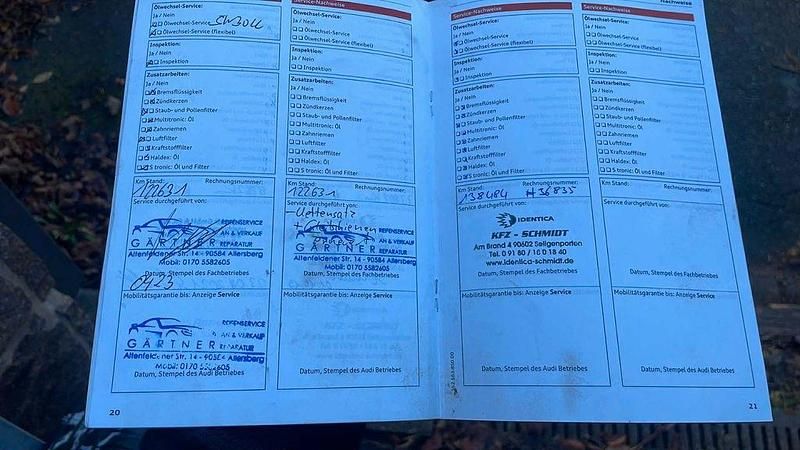 Service-Nachweise
Ölwechsel-Service:
Ja / Nein
Ölwechsel-Service 5W30LL
Ölwechsel-Service (flexibel)
Inspektion:
Ja / Nein
Inspektion
Zusatzarbeiten:
Ja / Nein
Bremsflüssigkeit
Zündkerzen
Staub- und Pollenfilter
Multitronic: Öl
Zahnriemen
Luftfilter
Kraftstofffilter
Haldex: Öl
S tronic: Öl und Filter
Km Stand: Rechnungsnummer:
122631
Service durchgeführt von:
REIFENSERVICE
AN & VERKAUF
GÄRTNER REPARATUR
Altenfeldener Str. 14 - 90584 Allersberg
Mobil: 0170 5582605
Datum, Stempel des Fachbetriebes
0423
Mobilitätsgarantie bis: Anzeige Service
REIFENSERVICE
AN & VERKAUF
GÄRTNER REPARATUR
Altenfeldener Str. 14 - 90584 Allersberg
Mobil: 0170 5582605
Datum, Stempel des Audi Betriebes
20
Ölwechsel-Service:
Ja / Nein
Ölwechsel-Service
Ölwechsel-Service (flexibel)
Inspektion:
Ja / Nein
Inspektion
Zusatzarbeiten:
Ja / Nein
Bremsflüssigkeit
Zündkerzen
Staub- und Pollenfilter
Multitronic: Öl
Zahnriemen
Luftfilter
Kraftstofffilter
Haldex: Öl
S tronic: Öl und Filter
Km Stand: Rechnungsnummer:
122631
Service durchgeführt von:
REIFENSERVICE
AN & VERKAUF
GÄRTNER REPARATUR
Altenfeldener Str. 14 - 90584 Allersberg
Mobil: 0170 5582605
Datum, Stempel des Fachbetriebes
Mobilitätsgarantie bis: Anzeige Service
Datum, Stempel des Audi Betriebes
Service-Nachweise
Ölwechsel-Service:
Ja / Nein
Ölwechsel-Service
Ölwechsel-Service (flexibel)
Inspektion:
Ja / Nein
Inspektion
Zusatzarbeiten:
Ja / Nein
Bremsflüssigkeit
Zündkerzen
Staub- und Pollenfilter
Multitronic: Öl
Zahnriemen
Luftfilter
Kraftstofffilter
Haldex: Öl
S tronic: Öl und Filter
Km Stand: Rechnungsnummer:
138484 #36835
Service durchgeführt von:
IDENTICA
KFZ - SCHMIDT
Am Brand 4 90602 Seligenporten
Tel. 0 91 80 / 18 0 18 40
www.identica-schmidt.de
Datum, Stempel des Fachbetriebes
Mobilitätsgarantie bis: Anzeige Service
Datum, Stempel des Audi Betriebes
Service-Nachweise
Ölwechsel-Service:
Ja / Nein
Ölwechsel-Service
Ölwechsel-Service (flexibel)
Inspektion:
Ja / Nein
Inspektion
Zusatzarbeiten:
Ja / Nein
Bremsflüssigkeit
Zündkerzen
Staub- und Pollenfilter
Multitronic: Öl
Zahnriemen
Luftfilter
Kraftstofffilter
Haldex: Öl
S tronic: Öl und Filter
Km Stand: Rechnungsnummer:
Service durchgeführt von:
Datum, Stempel des Fachbetriebes
Mobilitätsgarantie bis: Anzeige Service
Datum, Stempel des Audi Betriebes
21